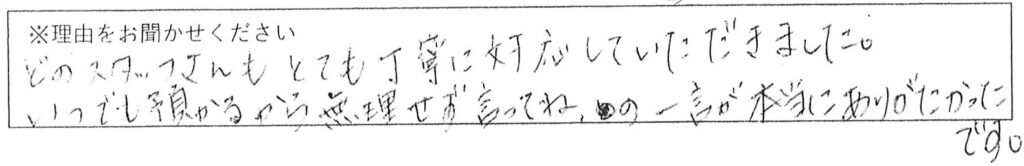 ※理由をお聞かせください
どのスタッフさんもとても丁寧に対応していただきました。
いつでも預かるから無理せず言ってね、の一言が本当にありがたかった
です。